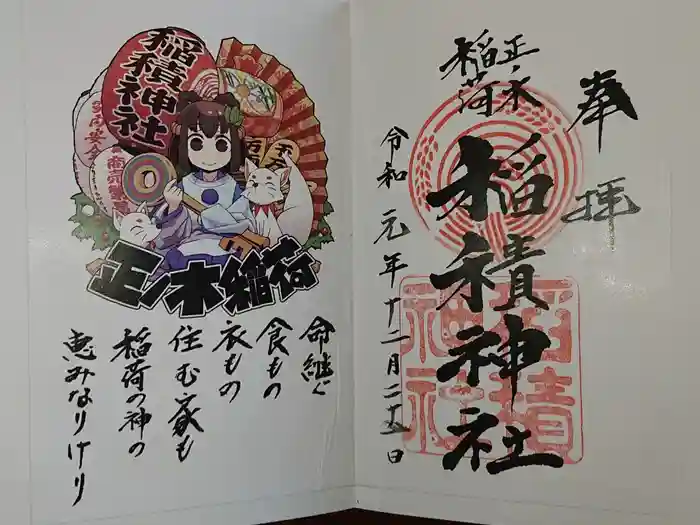 奉拝
正ノ木
稲荷
稲積神社
令和元年十二月二十五日
稲積神社
稲積神社
家内安全
商売繁盛
千万両
正ノ木稲荷
命継ぐ
食もの
衣もの
住む家も
稲荷の神の
恵みなりけり